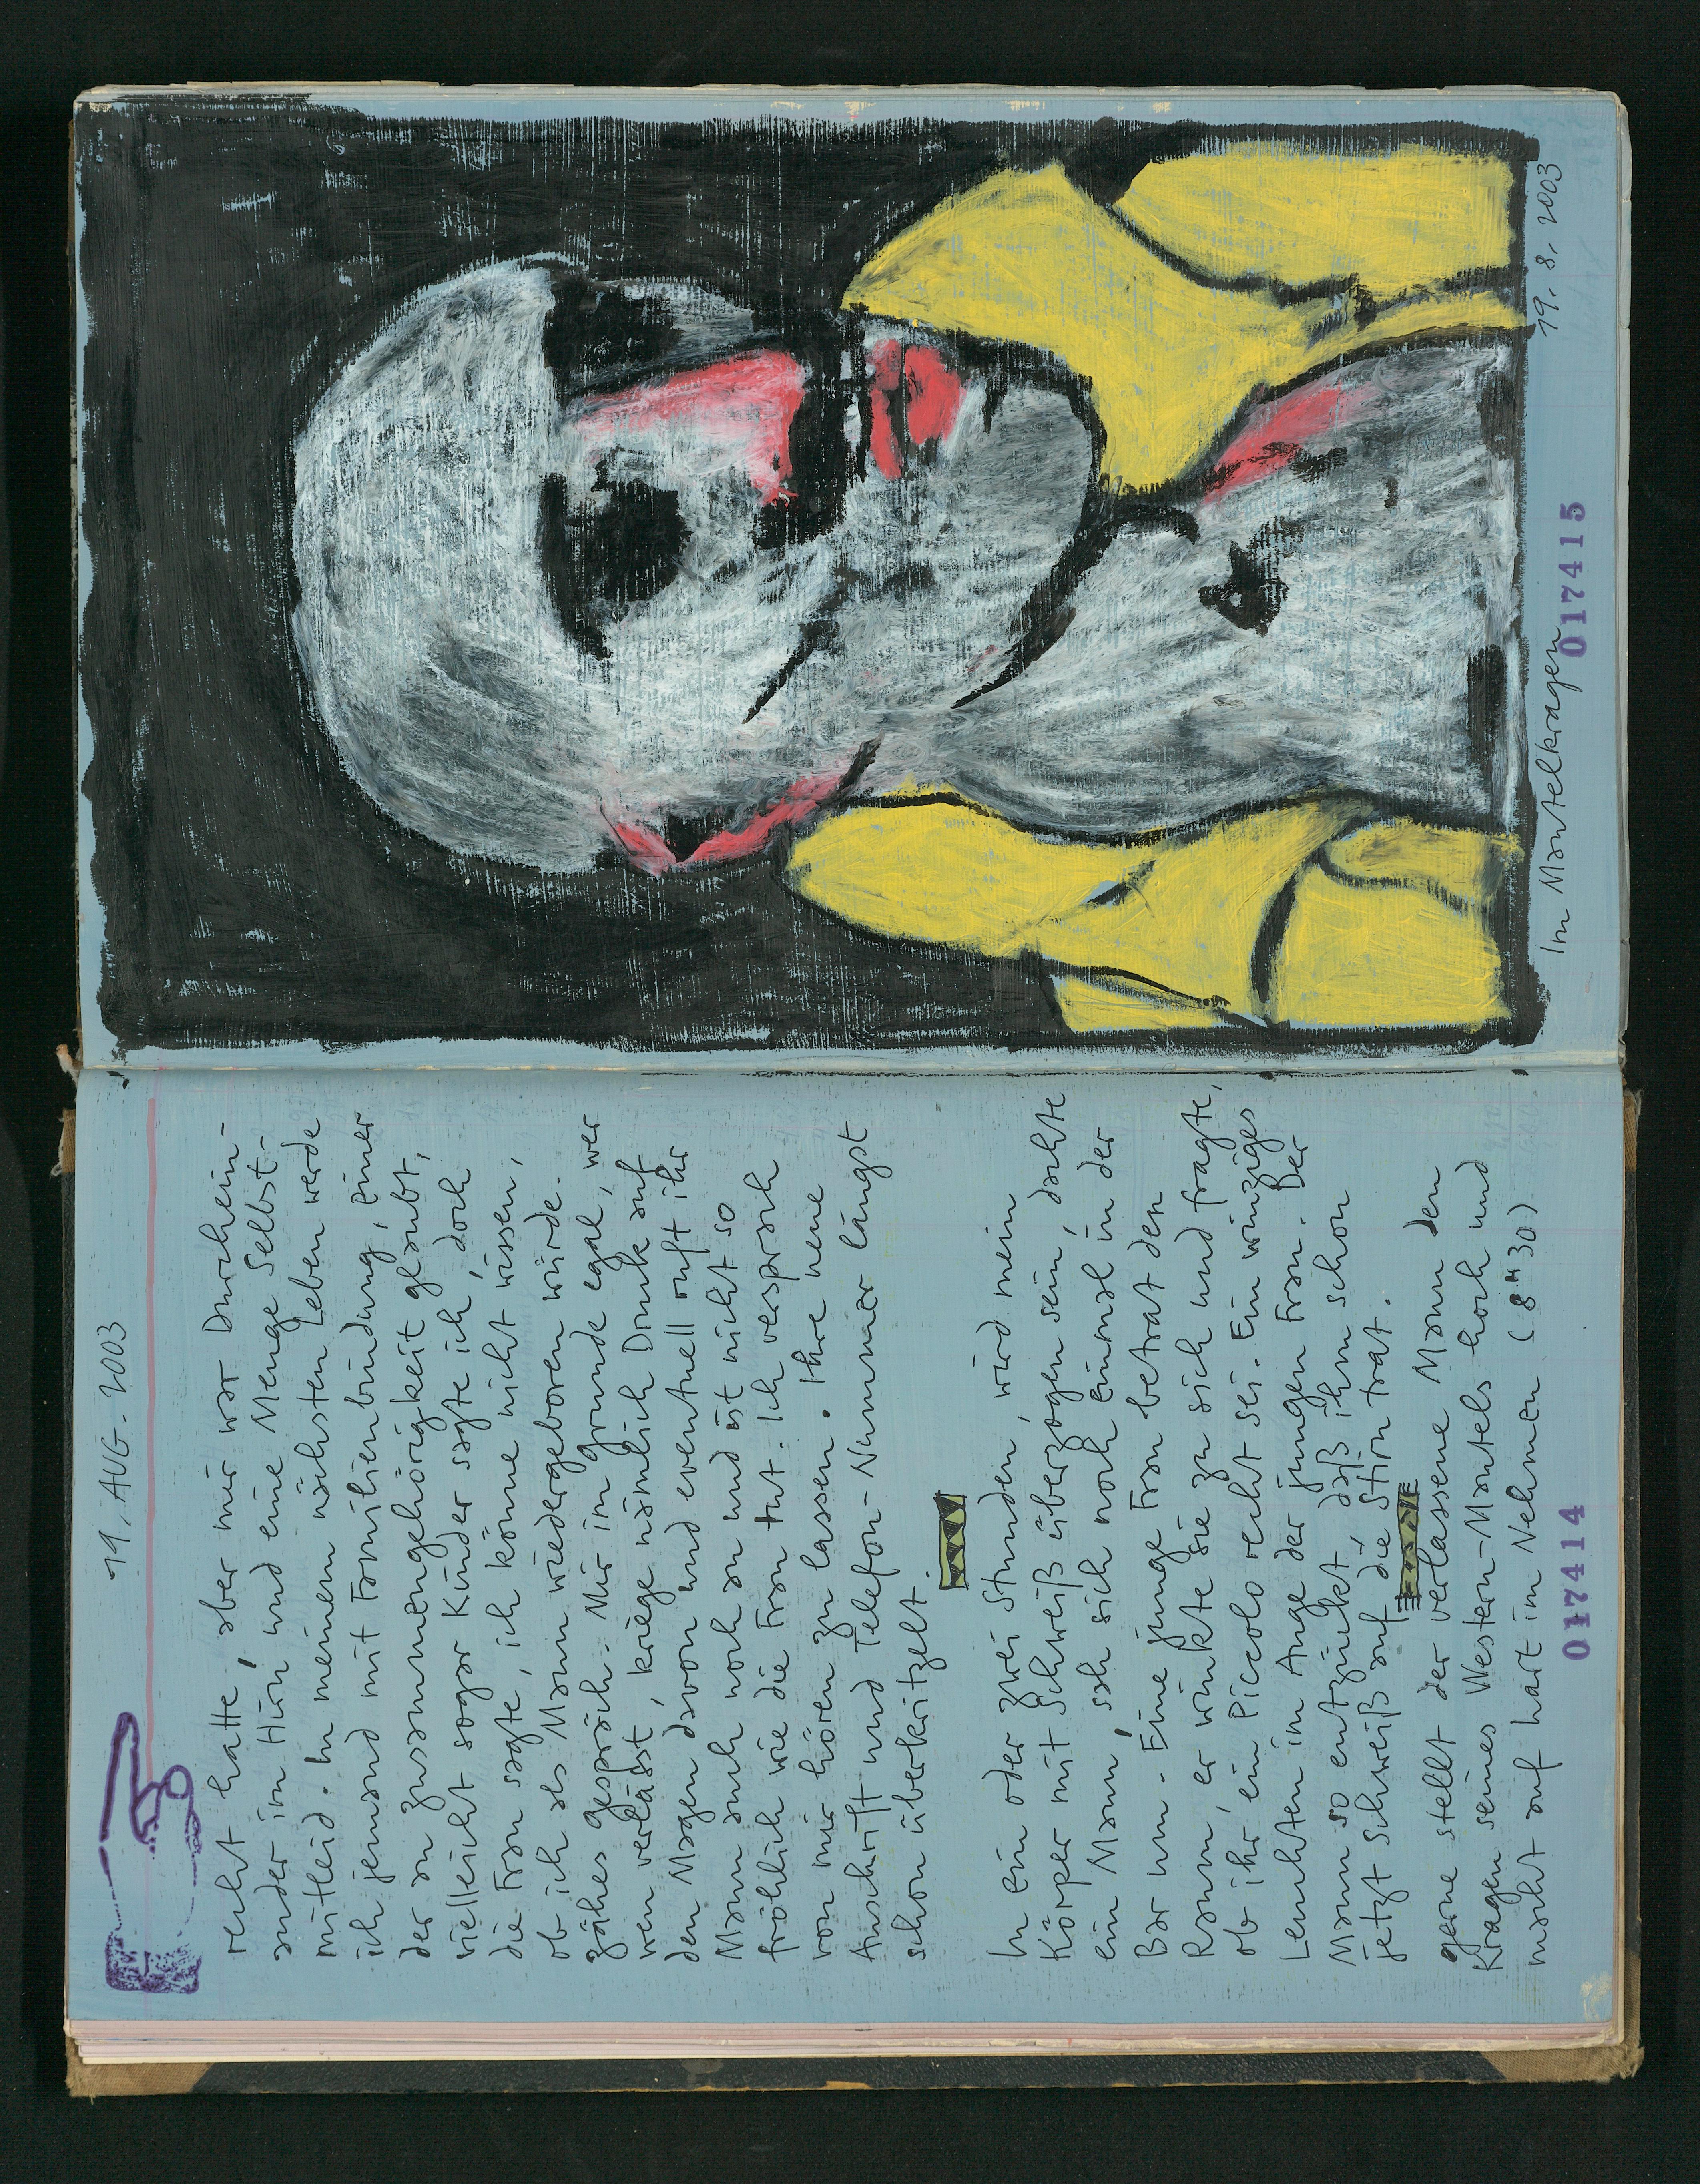 19. AUG. 2003
recht hatte, aber mir war Durchein-
ander im Hirn und eine Menge Selbst-
mitleid. In meinem nächsten Leben werde
ich jemand mit Familienbindung, einer
der an Zusammengehörigkeit glaubt,
vielleicht sogar Kinder sagte ich, doch
die Frau sagte, ich könne nicht wissen,
ob ich als Mann wiedergeboren würde.
Zähes Gespräch. Mir im Grunde egal, wer
wen verläßt, kriege nämlich Druck auf
den Magen davon und eventuell ruft ihr
Mann auch noch an und ist nicht so
fröhlich wie die Frau tut. Ich versprach
von mir hören zu lassen. Ihre neue
Anschrift und Telefon-Nummer längst
schon überkritzelt.
In ein oder zwei Stunden, wird mein
Körper mit Schweiß überzogen sein, dachte
ein Mann, sah sich noch einmal in der
Bar um. Eine junge Frau betrat den
Raum, er winkte sie zu sich und fragte,
ob ihr ein Piccolo recht sei. Ein winziges
Leuchten im Auge der jungen Frau. Der
Mann so entzückt, daß ihm schon
jetzt Schweiß auf die Stirn trat.
gerne stellt der verlassene Mann den
Kragen seines Western-Mantels hoch und
macht auf hart im Nehmen (8 H 30)
017414
Im Mantelkragen
19. 8. 2003
017415